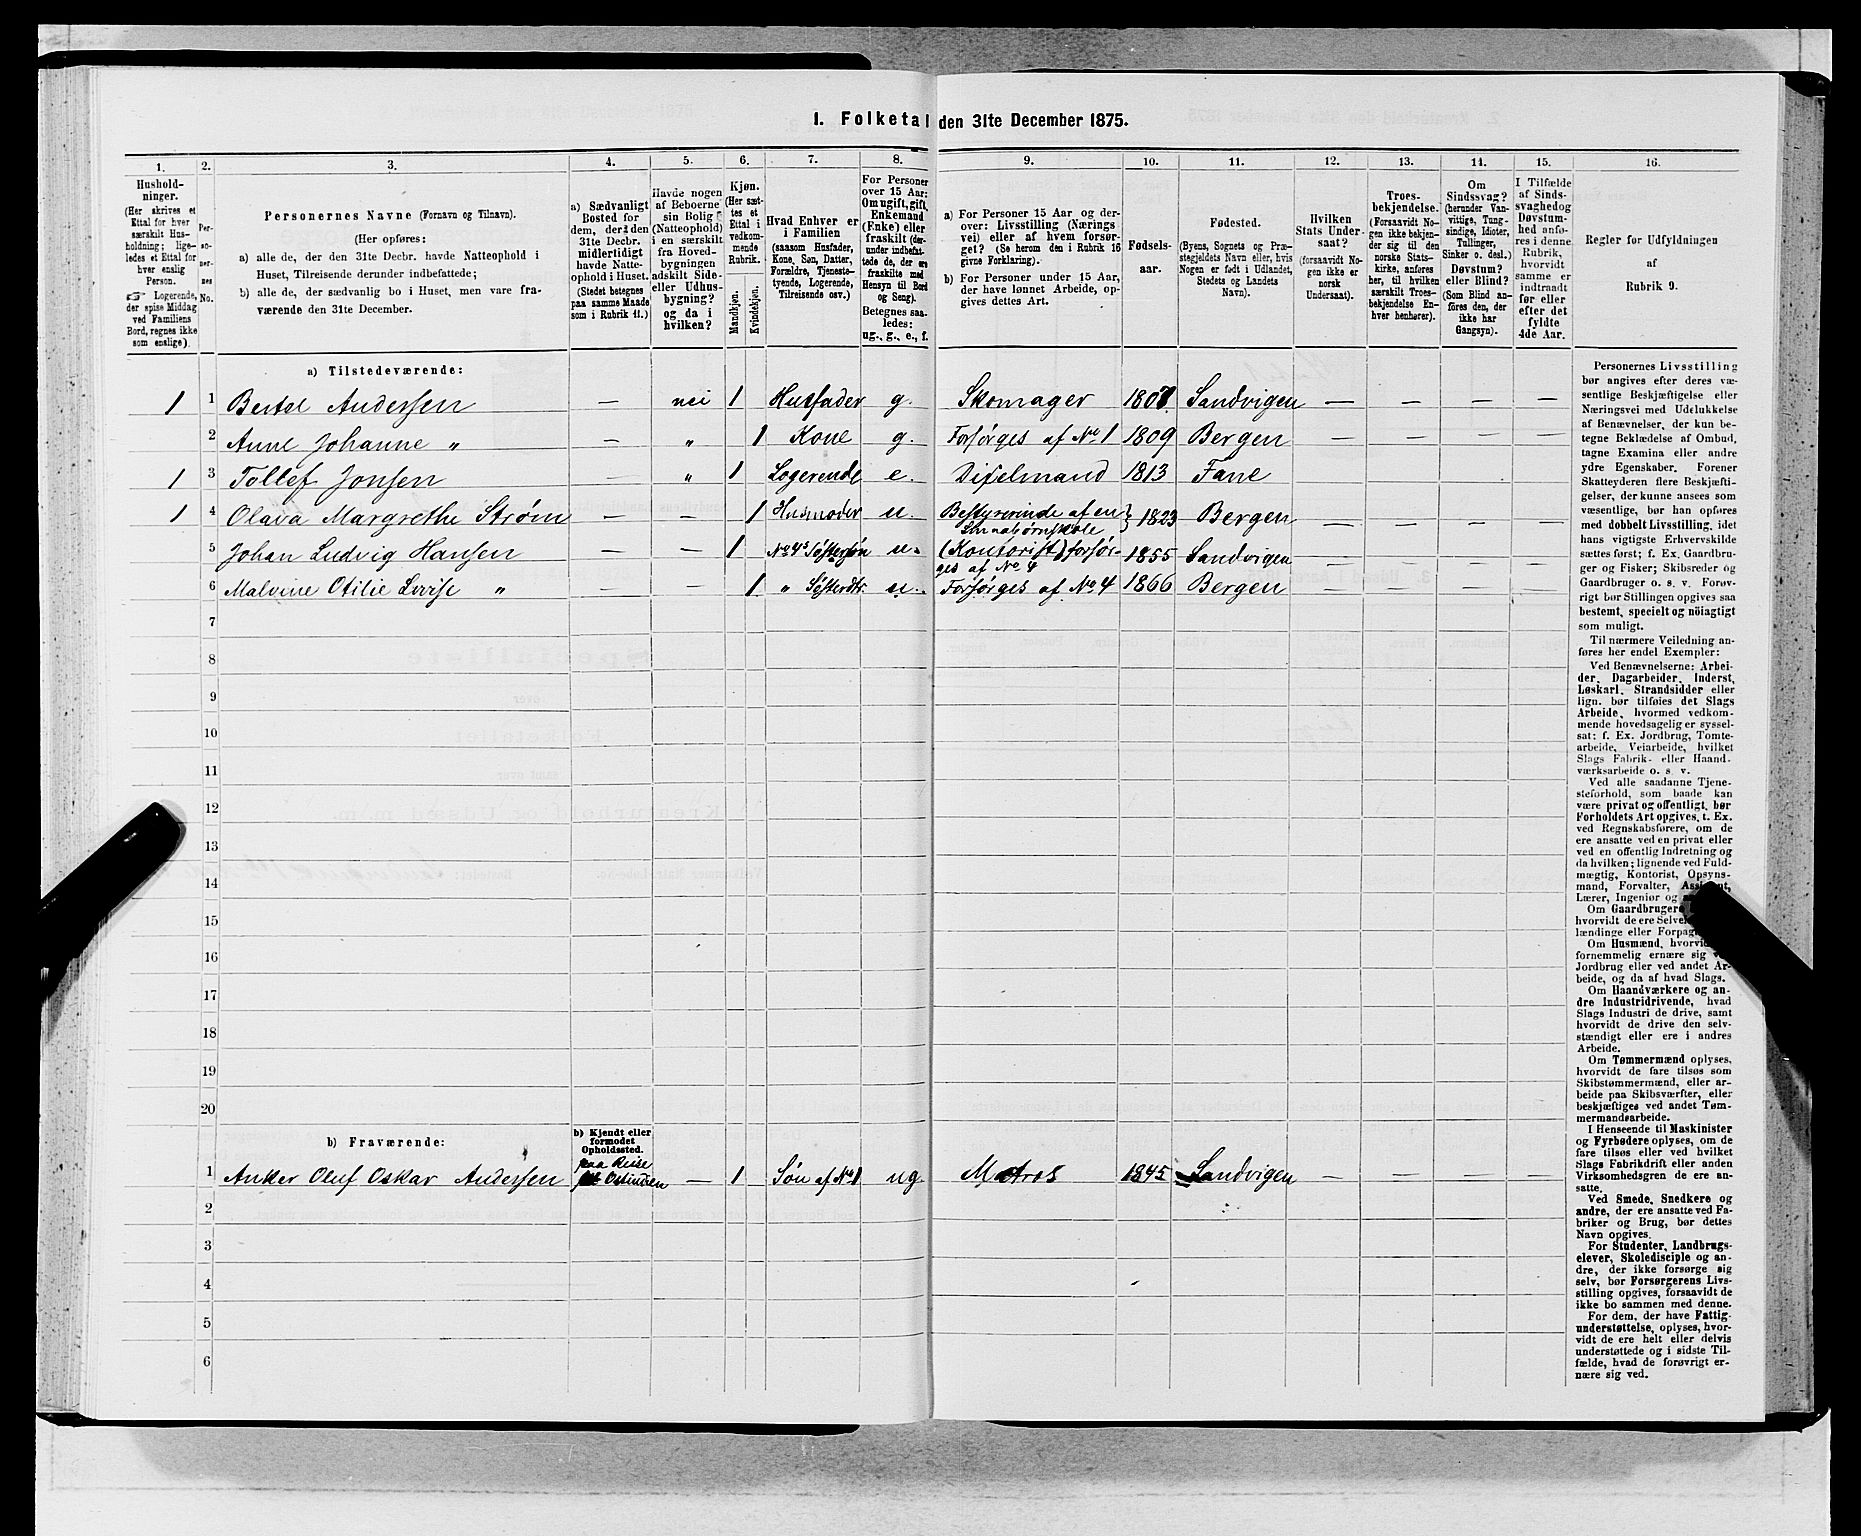 1. Folketal den 31te December 1875.
1. 2. 3. 4. 5. 6. 7. 8. 9. 10. 11. 12. 13. 14. 15. 16.
Hushold-
ninger.
(Her skrives et
Ettal for hver
særskilt Hus-
holdning; lige-
ledes et Ettal for
hver enslig
Person.
☞ Logerende,
der spise Middag
ved Familiens
Bord, regnes ikke
som enslige).
Per-
so-
ner-
nes
No.
Personernes Navne (Fornavn og Tilnavn).
(Her opføres:
a) alle de, der den 31te Decbr. havde Natteophold i
Huset, Tilreisende derunder indbefattede;
b) alle de, der sædvanlig bo i Huset, men vare fra-
værende den 31te December.
a) Sædvanligt
Bosted for
dem, der den
31te Decbr.
midlertidigt
havde Natte-
ophold i Huset.
(Stedet betegnes
paa samme Maade
som i Rubrik 11.)
Havde nogen
af Beboerne
sin Bolig
(Natteophold)
i en særskilt
fra Hoved-
bygningen
adskilt Side-
eller Udhus-
bygning?
og da i
hvilken?
Kjøn.
(Her sæt-
tes et
Ettal i
vedkom-
mende
Rubrik.
Mandkjøn.
Kvindekjøn.
Hvad Enhver er
i Familien
(saasom Husfader,
Kone, Søn, Datter,
Forældre, Tjeneste-
tyende, Logerende,
Tilreisende osv.)
For Personer
over 15 Aar:
Om ugift, gift,
Enkemand
(Enke) eller
fraskilt (der-
under indbefat-
tede de, der ere
fraskilte med
Hensyn til Bord
og Seng).
Betegnes saa-
ledes:
ug., g., e., f.
a) For Personer 15 Aar og der-
over: Livsstilling (Nærings
vei) eller af hvem forsør-
get? (Se herom den i Rubrik 16
givne Forklaring).
b) For Personer under 15 Aar,
der have lønnet Arbeide, op-
gives dettes Art.
Fødsels-
aar.
Fødested.
(Byens, Sognets og Præ-
stegjeldets Navn eller, hvis
Nogen er født i Udlandet,
Stedets og Landets
Navn).
Hvilken
Stats Under-
saat?
(forsaavidt No-
gen ikke er
norsk
Undersaat).
Troes-
bekjendelse.
(Forsaavidt No-
gen ikke bekjen-
der sig til den
norske Stats-
kirke, anføres
her, til hvilken
særskilt Troes-
bekjendelse En-
hver henhører).
Om
Sindssvag?
(herunder Van-
vittige, Tung-
sindige, Idioter,
Tullinger,
Sinker o. desl.)
Døvstum?
eller Blind?
(Som Blind an-
føres den, der
ikke har
Gangsyn).
I Tilfælde
af Sinds-
svaghed og
Døvstum-
hed anfø-
res i denne
Rubrik,
hvorvidt
samme er
indtraadt
før eller
efter det
fyldte
4de Aar.
Regler for Udfyldningen
af
Rubrik 9.
a) Tilstedeværende:
1 1 Bertel Andersen — nei 1 Husfader g. Skomager 1807. Sandvigen — — — —
2 Anne Johanne " — " 1 Kone g. Forsørges af No 1 1809 Bergen — — — —
1 3 Tollef Jonsen — " 1 Logerende e. Dixelmand 1813 Fane — — — —
1 4 Olava Margrethe Strøm — — 1 Husmoder u. Bestyrerinde af en
Smaabørnskole } 1823 Bergen — — — —
5 Johan Ludvig Hansen — — 1 No 4s Søstersøn u. (Kontorist) forsør-
ges af No 4 1855 Sandvigen — — — —
6 Malvine Otilie Lovise " 1 " Søsterdtr. u. Forsørges af No 4 1866 Bergen — — — —
7
8
9
10
11
12
13
14
15
16
17
18
19
20
b) Fraværende:
b) Kjendt eller
formodet
Opholdssted.
1 Anker Oluf Oskar Andersen paa Reise
Ostindien — 1 Søn af No 1 ug. Matros 1845 Sandvigen — — — —
2
3
4
5
6
Personernes Livsstilling
bør angives efter deres væ-
sentlige Beskjæftigelse eller
Næringsvei med Udelukkelse
af Benævnelser, der kun be-
tegne Beklædelse af Ombud,
tagne Examina eller andre
ydre Egenskaber. Forener
Skatteyderen flere Beskjæfti-
gelser, der kunne ansees som
væsentlige, bør han opføres
med dobbelt Livsstilling, idet
hans vigtigste Erhvervskilde
sættes først; f. Ex. Gaardbru-
ger og Fisker; Skibsreder og
Gaardbruger o. s. v. Forøv-
rigt bør Stillingen opgives saa
bestemt, specielt og nöiagtigt
som muligt.
Til nærmere Veiledning an-
føres her endel Exempler:
Ved Benævnelserne: Arbei-
der, Dagarbeider, Inderst,
Løskarl, Strandsidder eller
lign. bør tilføies det Slags
Arbeide, hvormed vedkom-
mende hovedsagelig er syssel-
sat: f. Ex. Jordbrug, Tomte-
arbeide, Veiarbeide, hvilket
Slags Fabrik- eller Haand-
værksarbeide o. s. v.
Ved alle saadanne Tjene-
steforhold, som baade kan
være privat og offentligt, bør
Forholdets Art opgives, t. Ex.
ved Regnskabsførere, om de
ere ansatte ved en privat eller
ved en offentlig Indretning og
da hvilken; lignende ved Fuld-
mægtig, Kontorist, Opsyns-
mand, Forvalter,
Lærer, Ingeniør og
Om Gaardbrugere
hvorvidt de ere
lændinge eller
Om Husmænd,
fornemmelig ernære sig
Jordbrug eller ved andet Ar-
beide, og da af hvad Slags.
Om Haandværkere og an-
dre Industridrivende, hvad
Slags Industri de drive, samt
hvorvidt de drive den selv-
stændigt eller ere i andres
Arbeide.
Om Tømmermænd oplyses,
hvorvidt de fare tilsøs som
Skibstømmermænd, eller ar-
beide paa Skibsværfter, eller
beskjæftiges ved andet Tøm-
mermandsarbeide.
I Henseende til Maskinister
og Fyrbødere oplyses, om de
fare tilsøs eller ved hvilket
Slags Fabrikdrift eller anden
Virksomhedsgren de ere an-
satte.
Ved Smede, Snedkere og
andre, der ere ansatte ved Fa-
briker og Brug, bør dettes
Navn opgives.
For Studenter, Landbrugs-
elever, Skoledisciple og an-
dre, der ikke forsørge sig
selv, bør Forsørgerens Livs-
stilling opgives, forsaavidt de
ikke bo sammen med denne.
For dem, der have Fattig-
understøttelse, oplyses, hvor-
vidt de ere helt eller delvis
understøttede og i sidste Til-
fælde, hvad de forøvrigt er-
nære sig ved.